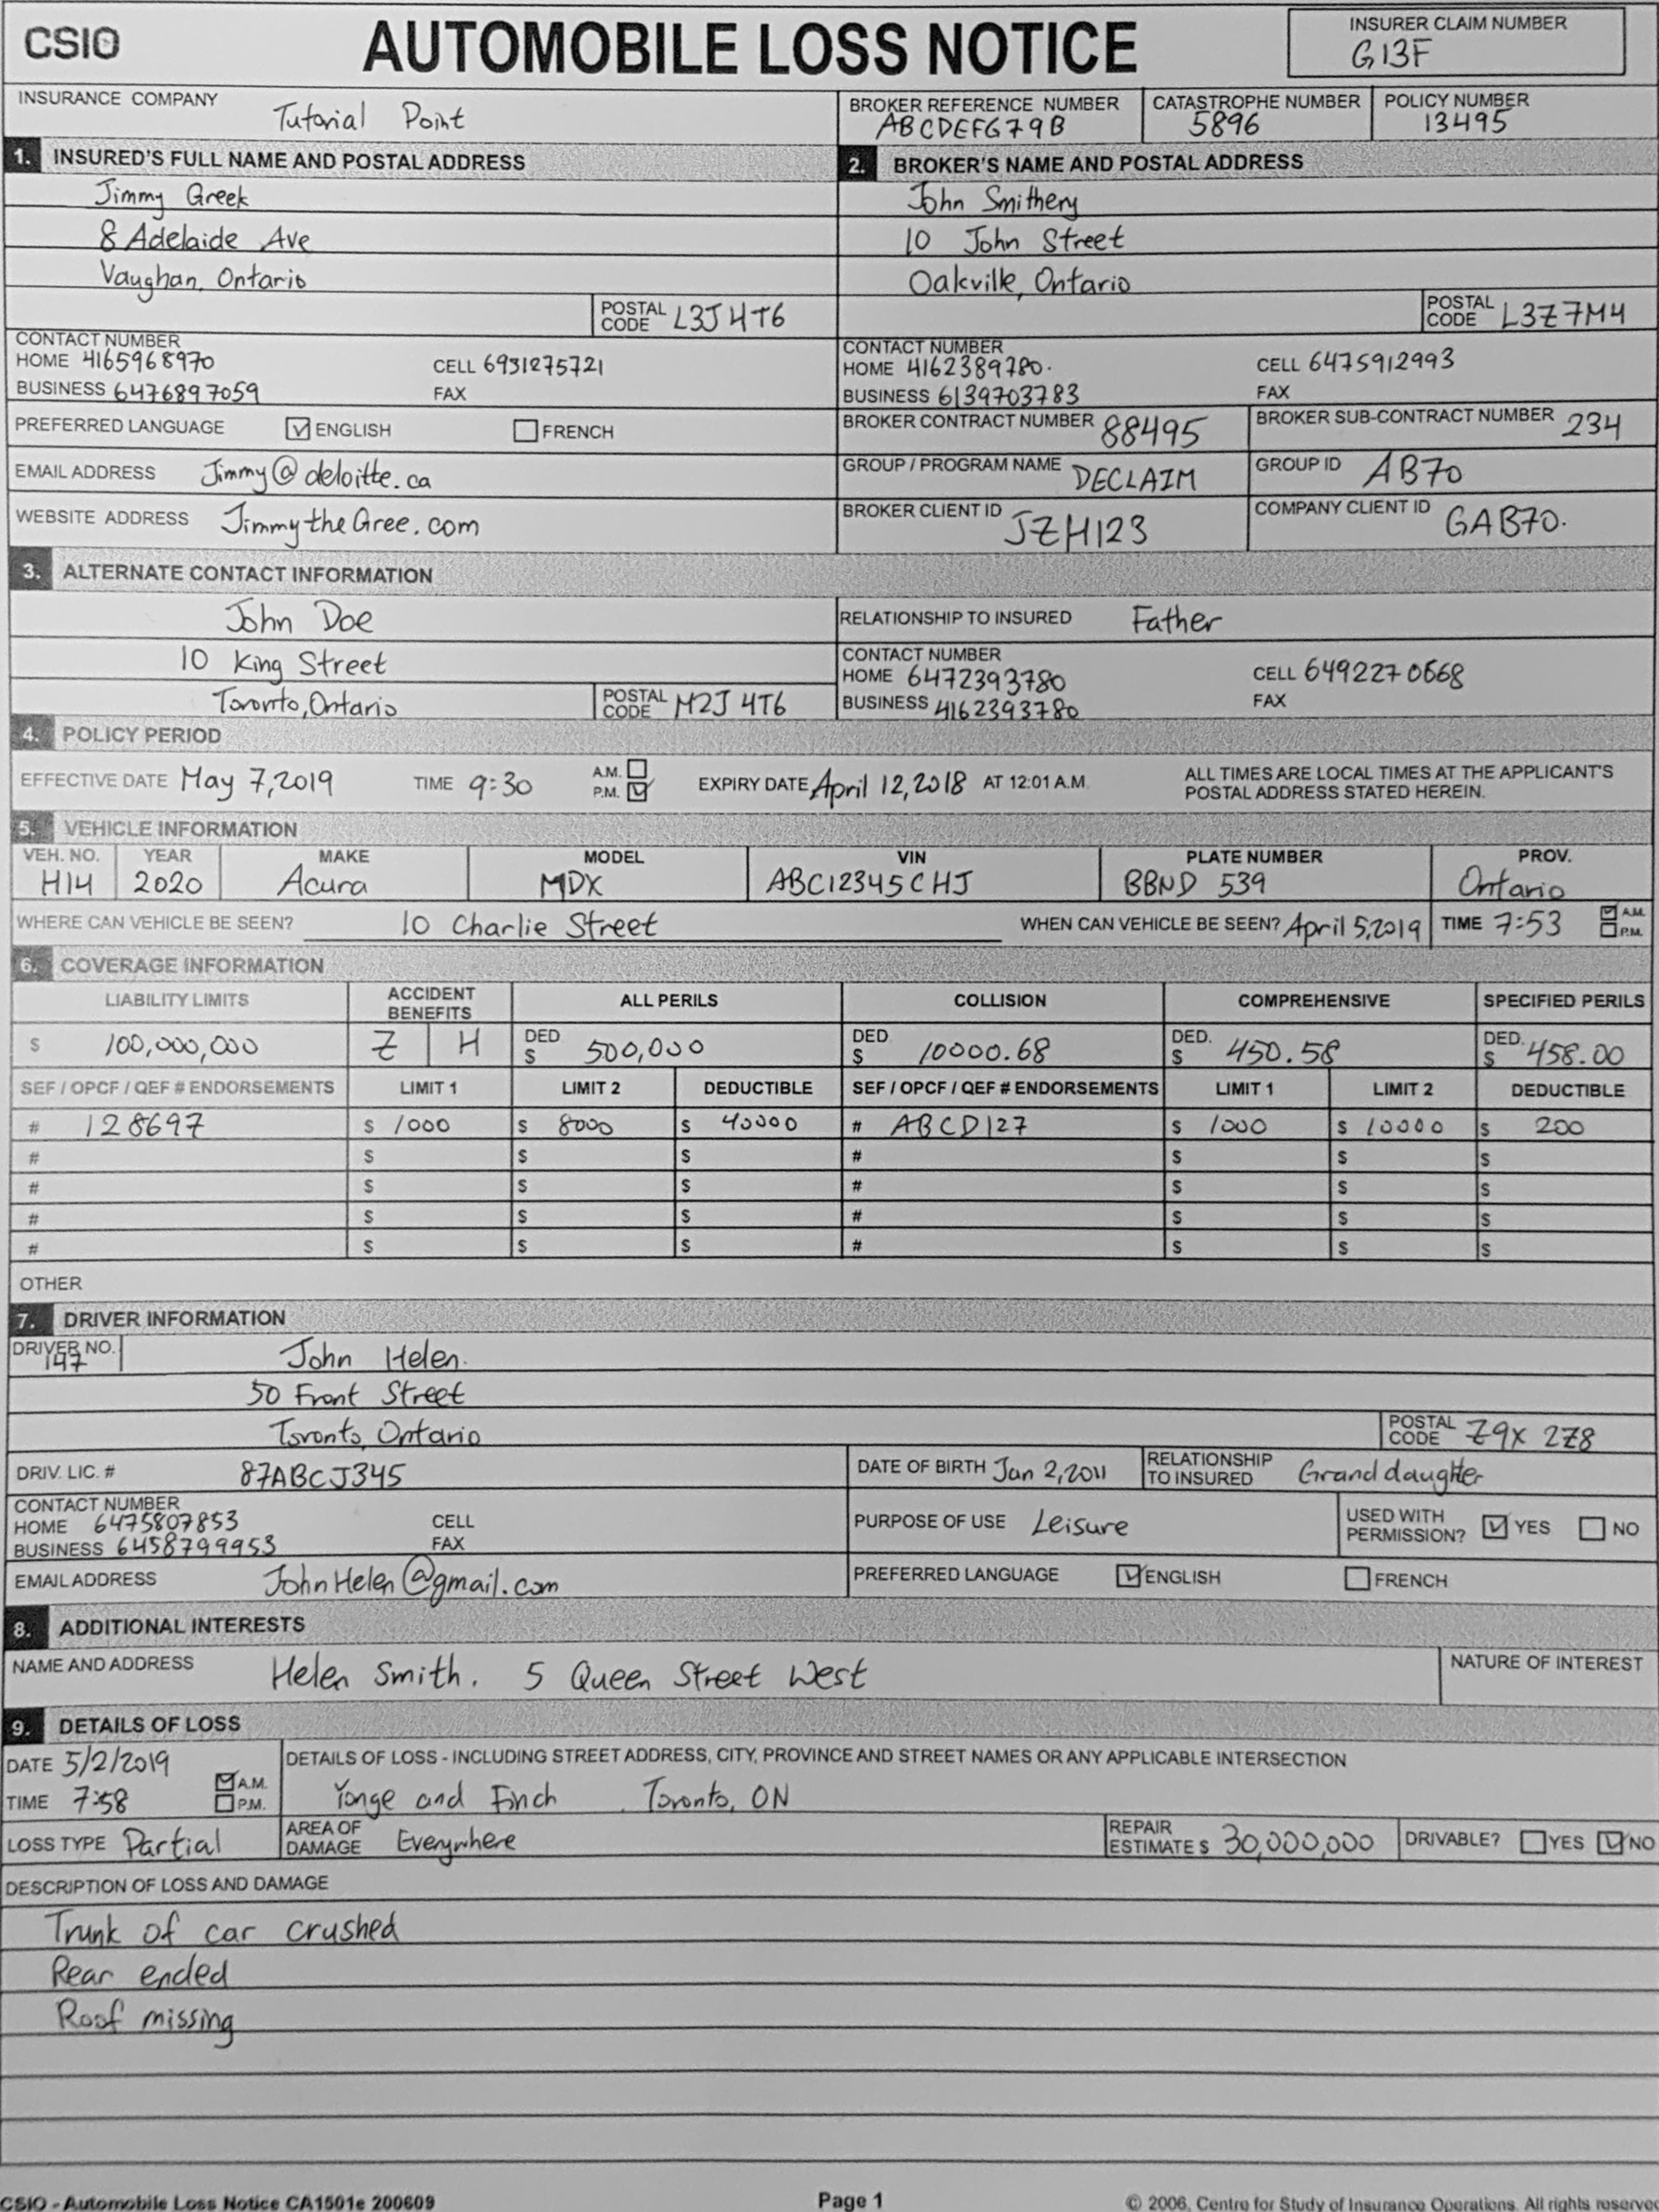 CSIO
AUTOMOBILE LOSS NOTICE
INSURER CLAIM NUMBER
G13F
INSURANCE COMPANY Tutorial Point
BROKER REFERENCE NUMBER ABCDEFG79B
CATASTROPHE NUMBER 5896
POLICY NUMBER 13495
1. INSURED'S FULL NAME AND POSTAL ADDRESS
Jimmy Greek
8 Adelaide Ave
Vaughan, Ontario
POSTAL CODE L3J 4T6
CONTACT NUMBER
HOME 4165968970 CELL 6931275721
BUSINESS 6476897059 FAX
PREFERRED LANGUAGE ENGLISH FRENCH
EMAIL ADDRESS Jimmy@deloitte.ca
WEBSITE ADDRESS JimmytheGree.com
2. BROKER'S NAME AND POSTAL ADDRESS
John Smithery
10 John Street
Oakville, Ontario
POSTAL CODE L3Z7M4
CONTACT NUMBER
HOME 4162389780. CELL 6475912993
BUSINESS 6139703783 FAX
BROKER CONTRACT NUMBER 88495 BROKER SUB-CONTRACT NUMBER 234
GROUP / PROGRAM NAME DECLAIM GROUP ID AB70
BROKER CLIENT ID JZH123 COMPANY CLIENT ID GAB70.
3. ALTERNATE CONTACT INFORMATION
John Doe
10 King Street
Toronto, Ontario
POSTAL CODE M2J 4T6
RELATIONSHIP TO INSURED Father
CONTACT NUMBER
HOME 6472393780 CELL 6492270668
BUSINESS 4162393780 FAX
4. POLICY PERIOD
EFFECTIVE DATE May 7, 2019 TIME 9:30 A.M. P.M. EXPIRY DATE April 12, 2018 AT 12:01 A.M.
ALL TIMES ARE LOCAL TIMES AT THE APPLICANT'S
POSTAL ADDRESS STATED HEREIN.
5. VEHICLE INFORMATION
VEH. NO. YEAR MAKE MODEL VIN PLATE NUMBER PROV.
H14 2020 Acura MDX ABC12345CHJ BBND 539 Ontario
WHERE CAN VEHICLE BE SEEN? 10 Charlie Street WHEN CAN VEHICLE BE SEEN? April 5, 2019 TIME 7:53 A.M. P.M.
6. COVERAGE INFORMATION
LIABILITY LIMITS ACCIDENT BENEFITS ALL PERILS COLLISION COMPREHENSIVE SPECIFIED PERILS
$ 100,000,000 Z H DED $ 500,000 DED. $ 10000.68 DED. $ 450.58 DED. $ 458.00
SEF / OPCF / QEF # ENDORSEMENTS LIMIT 1 LIMIT 2 DEDUCTIBLE SEF / OPCF / QEF # ENDORSEMENTS LIMIT 1 LIMIT 2 DEDUCTIBLE
# 128697 $ 1000 $ 8000 $ 40000 # ABCD127 $ 1000 $ 10000 $ 200
# $ $ $ # $ $ $
# $ $ $ # $ $ $
# $ $ $ # $ $ $
# $ $ $ # $ $ $
OTHER
7. DRIVER INFORMATION
DRIVER NO. 147
John Helen.
50 Front Street
Toronto, Ontario
POSTAL CODE Z9X 2Z8
DRIV. LIC. # 87ABCJ345 DATE OF BIRTH Jan 2, 2011 RELATIONSHIP TO INSURED Grand daughter
CONTACT NUMBER
HOME 6475807853 CELL
BUSINESS 6458799953 FAX
PURPOSE OF USE Leisure USED WITH PERMISSION? YES NO
EMAIL ADDRESS JohnHelen@gmail.com PREFERRED LANGUAGE ENGLISH FRENCH
8. ADDITIONAL INTERESTS
NAME AND ADDRESS Helen Smith. 5 Queen Street West NATURE OF INTEREST
9. DETAILS OF LOSS
DATE 5/2/2019
TIME 7:58 A.M. P.M.
DETAILS OF LOSS - INCLUDING STREET ADDRESS, CITY, PROVINCE AND STREET NAMES OR ANY APPLICABLE INTERSECTION
Yonge and Finch Toronto, ON
LOSS TYPE Partial AREA OF DAMAGE Everywhere REPAIR ESTIMATE $ 30,000,000 DRIVABLE? YES NO
DESCRIPTION OF LOSS AND DAMAGE
Trunk of car crushed
Rear ended
Roof missing
CSIO - Automobile Loss Notice CA1501e 200609
Page 1
© 2006, Centre for Study of Insurance Operations. All rights reserved